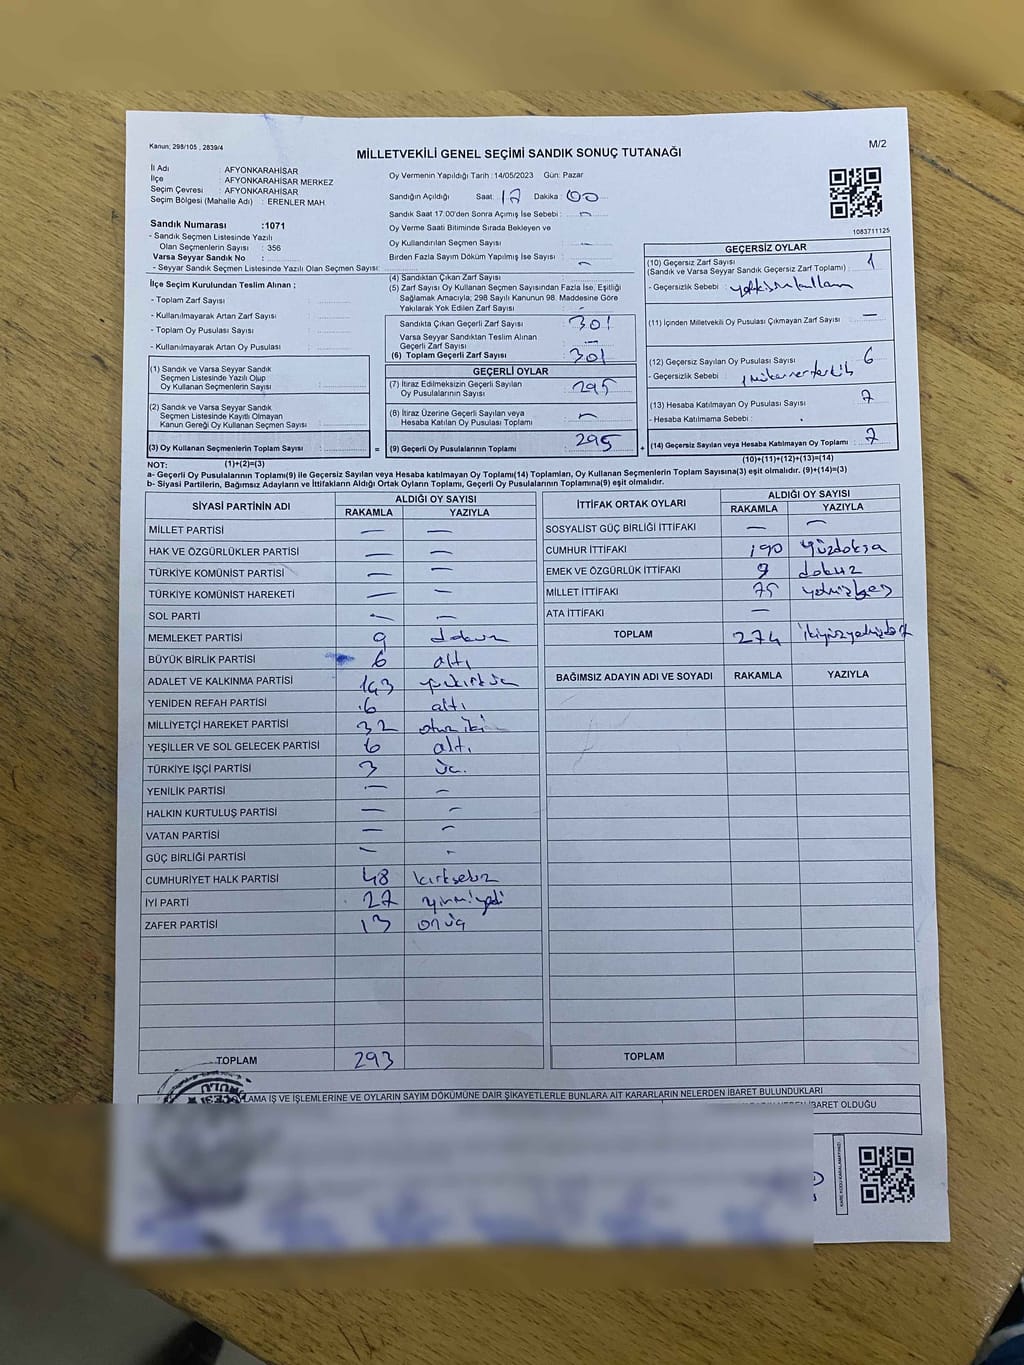 Kanun; 298/105 , 2839/4
M/2
MİLLETVEKİLİ GENEL SEÇİMİ SANDIK SONUÇ TUTANAĞI
İl Adı : AFYONKARAHİSAR
İlçe : AFYONKARAHİSAR MERKEZ
Seçim Çevresi : AFYONKARAHİSAR
Seçim Bölgesi (Mahalle Adı) : ERENLER MAH.
Sandık Numarası :1071
- Sandık Seçmen Listesinde Yazılı
Olan Seçmenlerin Sayısı : 356
Varsa Seyyar Sandık No :
- Seyyar Sandık Seçmen Listesinde Yazılı Olan Seçmen Sayısı:
İlçe Seçim Kurulundan Teslim Alınan ;
- Toplam Zarf Sayısı :
- Kullanılmayarak Artan Zarf Sayısı :
- Toplam Oy Pusulası Sayısı :
- Kullanılmayarak Artan Oy Pusulası :
(1) Sandık ve Varsa Seyyar Sandık
Seçmen Listesinde Yazılı Olup
Oy Kullanan Seçmenlerin Sayısı :
(2) Sandık ve Varsa Seyyar Sandık
Seçmen Listesinde Kayıtlı Olmayan
Kanun Gereği Oy Kullanan Seçmen Sayısı :
(3) Oy Kullanan Seçmenlerin Toplam Sayısı :
(1)+(2)=(3)
Oy Vermenin Yapıldığı Tarih : 14/05/2023 Gün: Pazar
Sandığın Açıldığı Saat : 17 Dakika : 00
Sandık Saat 17.00'den Sonra Açımış İse Sebebi : —
Oy Verme Saati Bitiminde Sırada Bekleyen ve
Oy Kullandırılan Seçmen Sayısı : —
Birden Fazla Sayım Döküm Yapılmış İse Sayısı : —
(4) Sandıktan Çıkan Zarf Sayısı :
(5) Zarf Sayısı Oy Kullanan Seçmen Sayısından Fazla İse, Eşitliği
Sağlamak Amacıyla; 298 Sayılı Kanunun 98. Maddesine Göre
Yakılarak Yok Edilen Zarf Sayısı : —
Sandıkta Çıkan Geçerli Zarf Sayısı : 301
Varsa Seyyar Sandıktan Teslim Alınan
Geçerli Zarf Sayısı : —
(6) Toplam Geçerli Zarf Sayısı : 301
GEÇERLİ OYLAR
(7) İtiraz Edilmeksizin Geçerli Sayılan
Oy Pusulalarının Sayısı : 295
(8) İtiraz Üzerine Geçerli Sayılan veya
Hesaba Katılan Oy Pusulası Toplamı : —
(9) Geçerli Oy Pusulalarının Toplamı : 295
1083711125
GEÇERSİZ OYLAR
(10) Geçersiz Zarf Sayısı
(Sandık ve Varsa Seyyar Sandık Geçersiz Zarf Toplamı) : 1
- Geçersizlik Sebebi :
(11) İçinden Milletvekili Oy Pusulası Çıkmayan Zarf Sayısı : —
(12) Geçersiz Sayılan Oy Pusulası Sayısı : 6
- Geçersizlik Sebebi :
(13) Hesaba Katılmayan Oy Pusulası Sayısı : 7
- Hesaba Katılmama Sebebi :
(14) Geçersiz Sayılan veya Hesaba Katılmayan Oy Toplamı : 7
(10)+(11)+(12)+(13)=(14)
NOT:
a- Geçerli Oy Pusulalarının Toplamı(9) ile Geçersiz Sayılan veya Hesaba katılmayan Oy Toplamı(14) Toplamları, Oy Kullanan Seçmenlerin Toplam Sayısına(3) eşit olmalıdır. (9)+(14)=(3)
b- Siyasi Partilerin, Bağımsız Adayların ve İttifakların Aldığı Ortak Oyların Toplamı, Geçerli Oy Pusulalarının Toplamına(9) eşit olmalıdır.
SİYASİ PARTİNİN ADI ALDIĞI OY SAYISI
RAKAMLA YAZIYLA
MİLLET PARTİSİ — —
HAK VE ÖZGÜRLÜKLER PARTİSİ — —
TÜRKİYE KOMÜNİST PARTİSİ — —
TÜRKİYE KOMÜNİST HAREKETİ — —
SOL PARTİ — —
MEMLEKET PARTİSİ 9 dokuz
BÜYÜK BİRLİK PARTİSİ 6 altı
ADALET VE KALKINMA PARTİSİ 143
YENİDEN REFAH PARTİSİ 6 altı
MİLLİYETÇİ HAREKET PARTİSİ 32 otuziki
YEŞİLLER VE SOL GELECEK PARTİSİ 6 altı
TÜRKİYE İŞÇİ PARTİSİ 3 üç
YENİLİK PARTİSİ — —
HALKIN KURTULUŞ PARTİSİ — —
VATAN PARTİSİ — —
GÜÇ BİRLİĞİ PARTİSİ — -
CUMHURİYET HALK PARTİSİ 48 kırksekiz
İYİ PARTİ 27 yirmiyedi
ZAFER PARTİSİ 13 onüç
TOPLAM 293
İTTİFAK ORTAK OYLARI ALDIĞI OY SAYISI
RAKAMLA YAZIYLA
SOSYALİST GÜÇ BİRLİĞİ İTTİFAKI — —
CUMHUR İTTİFAKI 190 yüzdoksa
EMEK VE ÖZGÜRLÜK İTTİFAKI 9 dokuz
MİLLET İTTİFAKI 75 yetmişbeş
ATA İTTİFAKI —
TOPLAM 274 ikiyüzyetmişdört
BAĞIMSIZ ADAYIN ADI VE SOYADI RAKAMLA YAZIYLA
TOPLAM
LAMA İŞ VE İŞLEMLERİNE VE OYLARIN SAYIM DÖKÜMÜNE DAİR ŞİKAYETLERLE BUNLARA AİT KARARLARIN NELERDEN İBARET BULUNDUKLARI
İBARET OLDUĞU